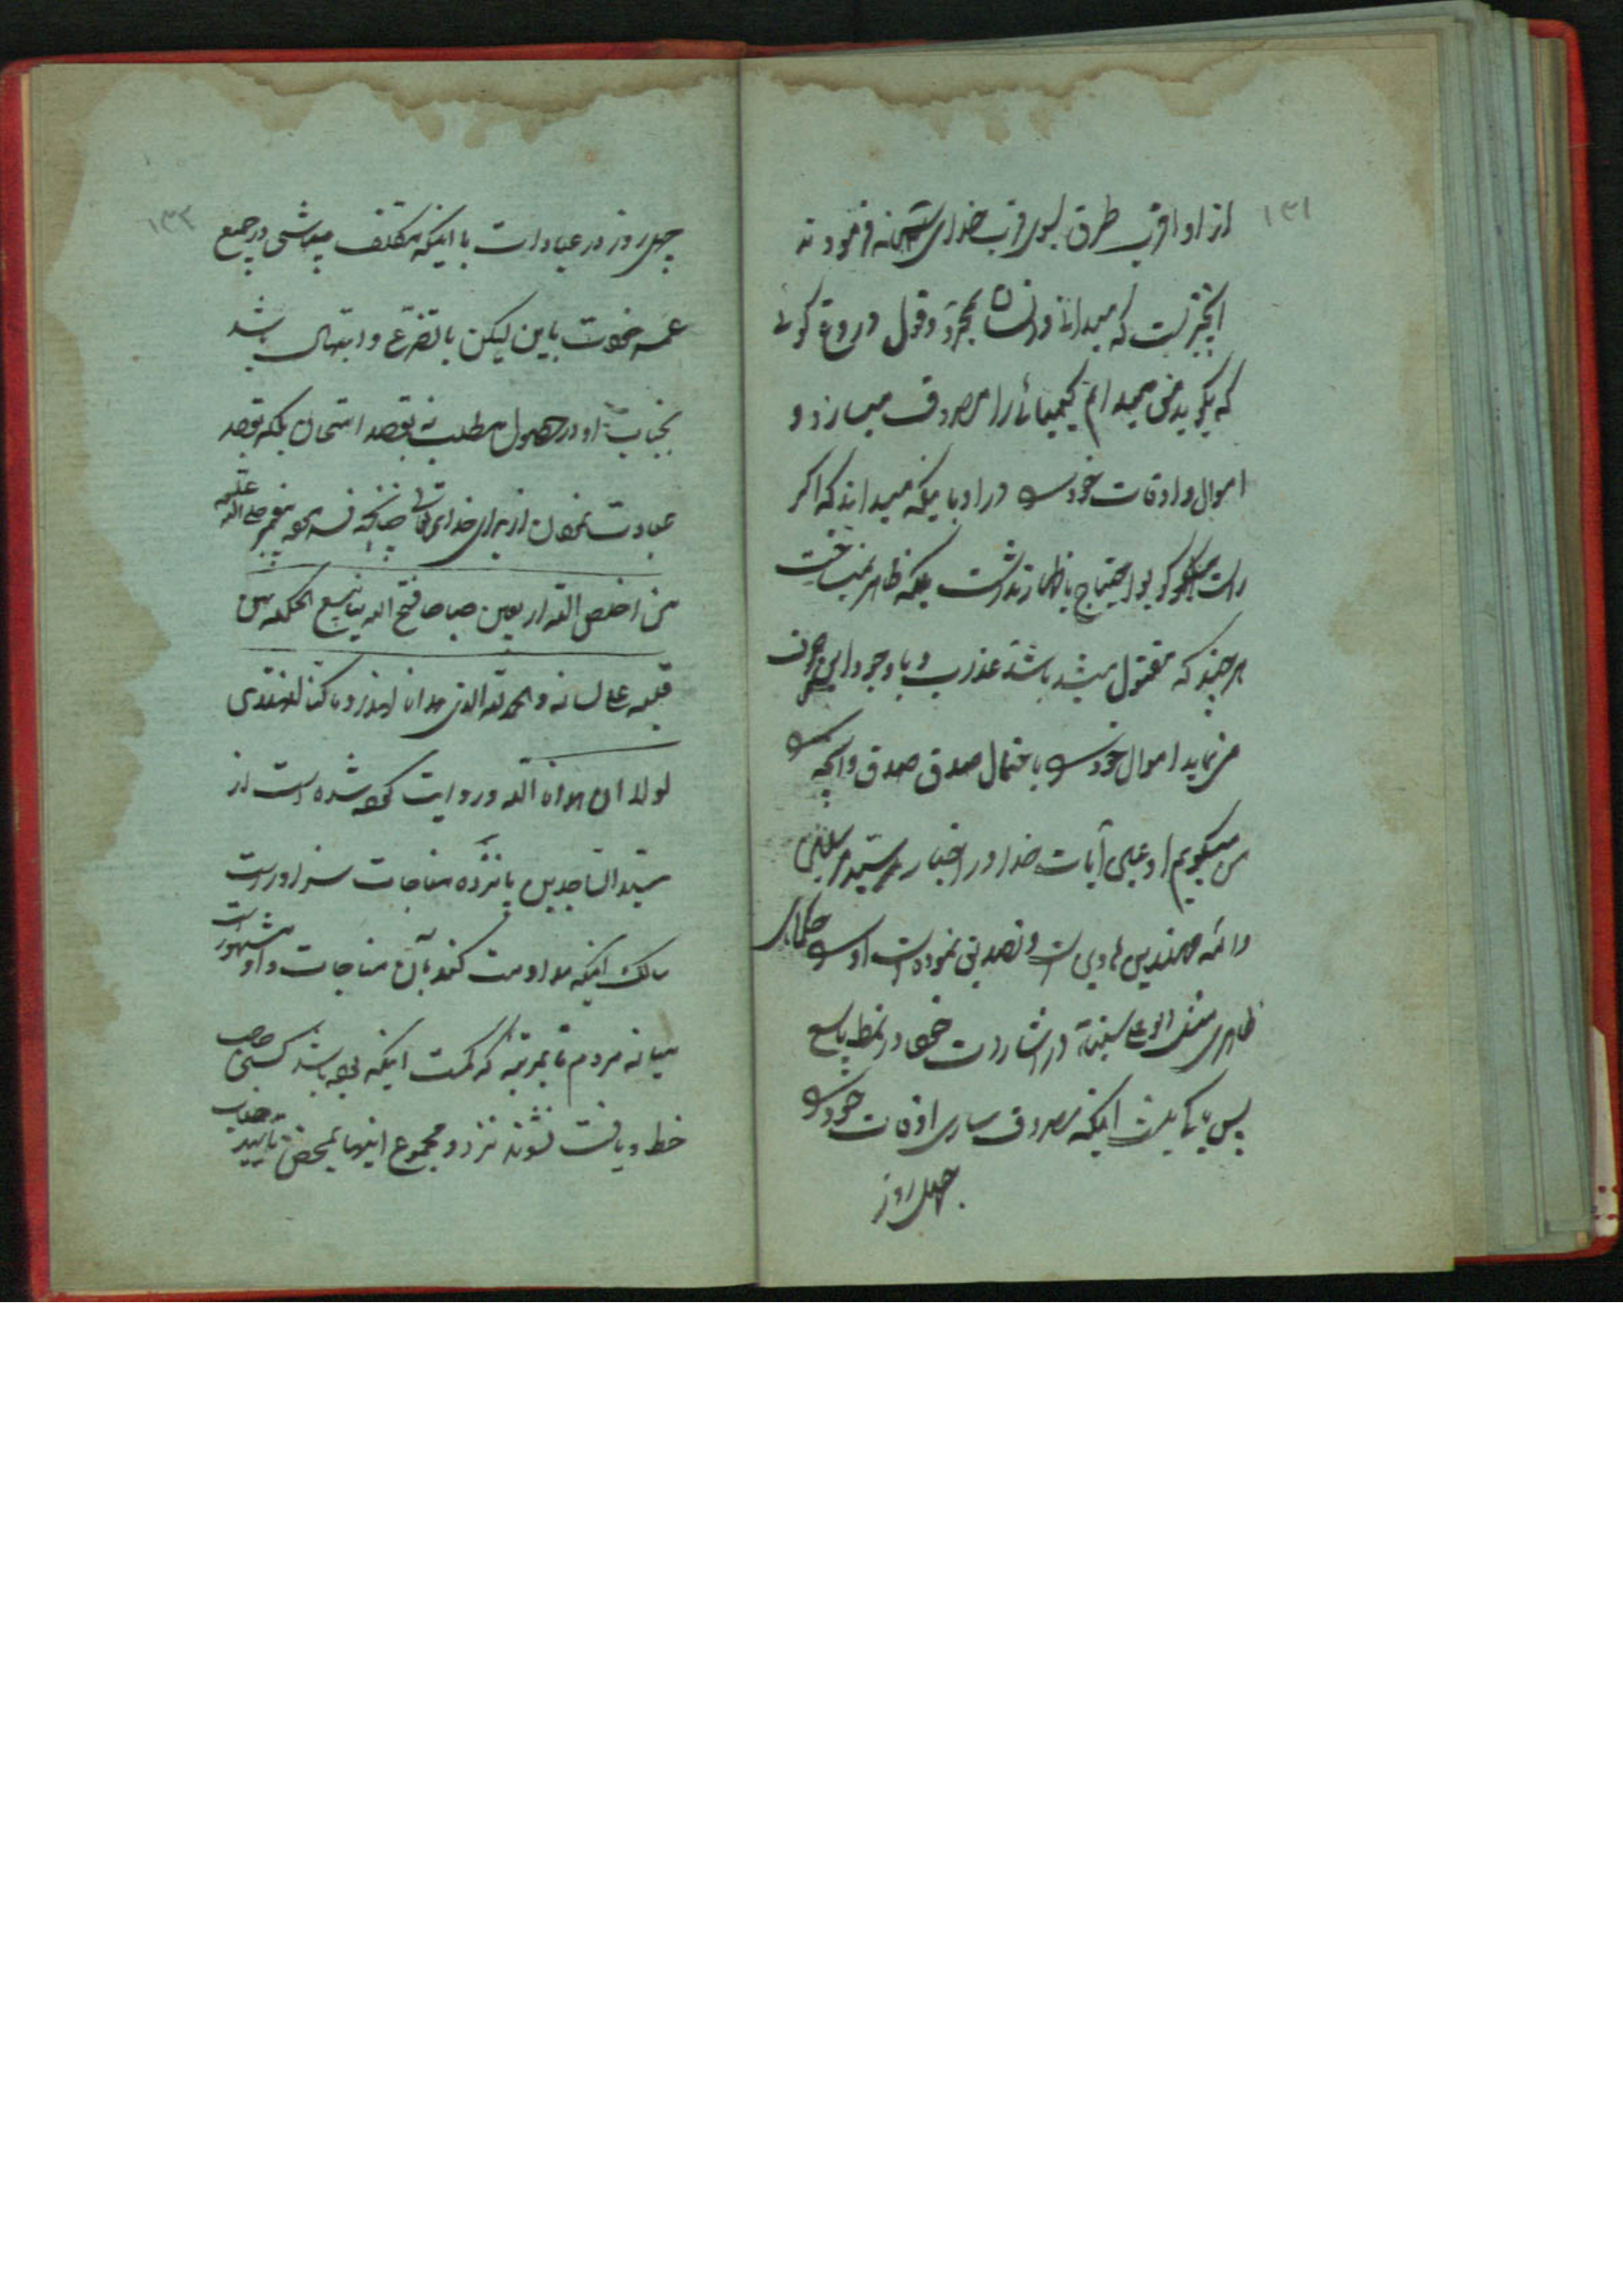 ۱۳۱
از او اقرب طرق بسوی قرب خدای فرمودند
که میدانی و انسان بمجرد قول دروغ کوئی
که بکوید من میدانم کیمیائی را مصروف میسازد
اموال و اوقات خود در او با اینکه میداند که اکر
راست کو بود احتیاج باظهار نداشت بلکه ظاهر نمیساخت
هر چند که مقتول میشد باشد عذاب و با وجود این صرف
می نماید اموال خود باحتمال صدق و آنچه
من میکویم او عین آیات خدا و اخبار سید مرسلین
و ائمه مهتدین هادین است و تصدیق نموده است او حکمای
ظاهری مثل ابو علی سینا در اشارات خود در نمط تاسع
پس چه اینکه مصروف سازی اوقات خود
چهل روز
۱۳۲
چهل روز در عبادات با اینکه مکلف میباشی در جمیع
عمر خودت باین لیکن با تضرع و ابتهال باشد
بجناب او در حصول مطلب نه بقصد امتحان بلکه بقصد
عبادت نمودن از برای خدای تعالی چنانچه فرمود پیغمبر صلی الله علیه
من اخلص لله اربعین صباحا فتح الله ینابیع الحکمة من
قلبه علی لسانه والحمد لله الذی هدانا لهذا وما کنا لنهتدی
لولا ان هدانا الله و روایت کرده شده است از
سید الساجدین پانزده مناجات سزاوار است
سالک اینکه مداومت کند بآن مناجات و او مشهور است
میانه مردم تا بمرتبه که کمست اینکه بوده باشد کسی صاحب
خط و یافت نشوند نزد او مجموع اینها بمحض تایید جناب